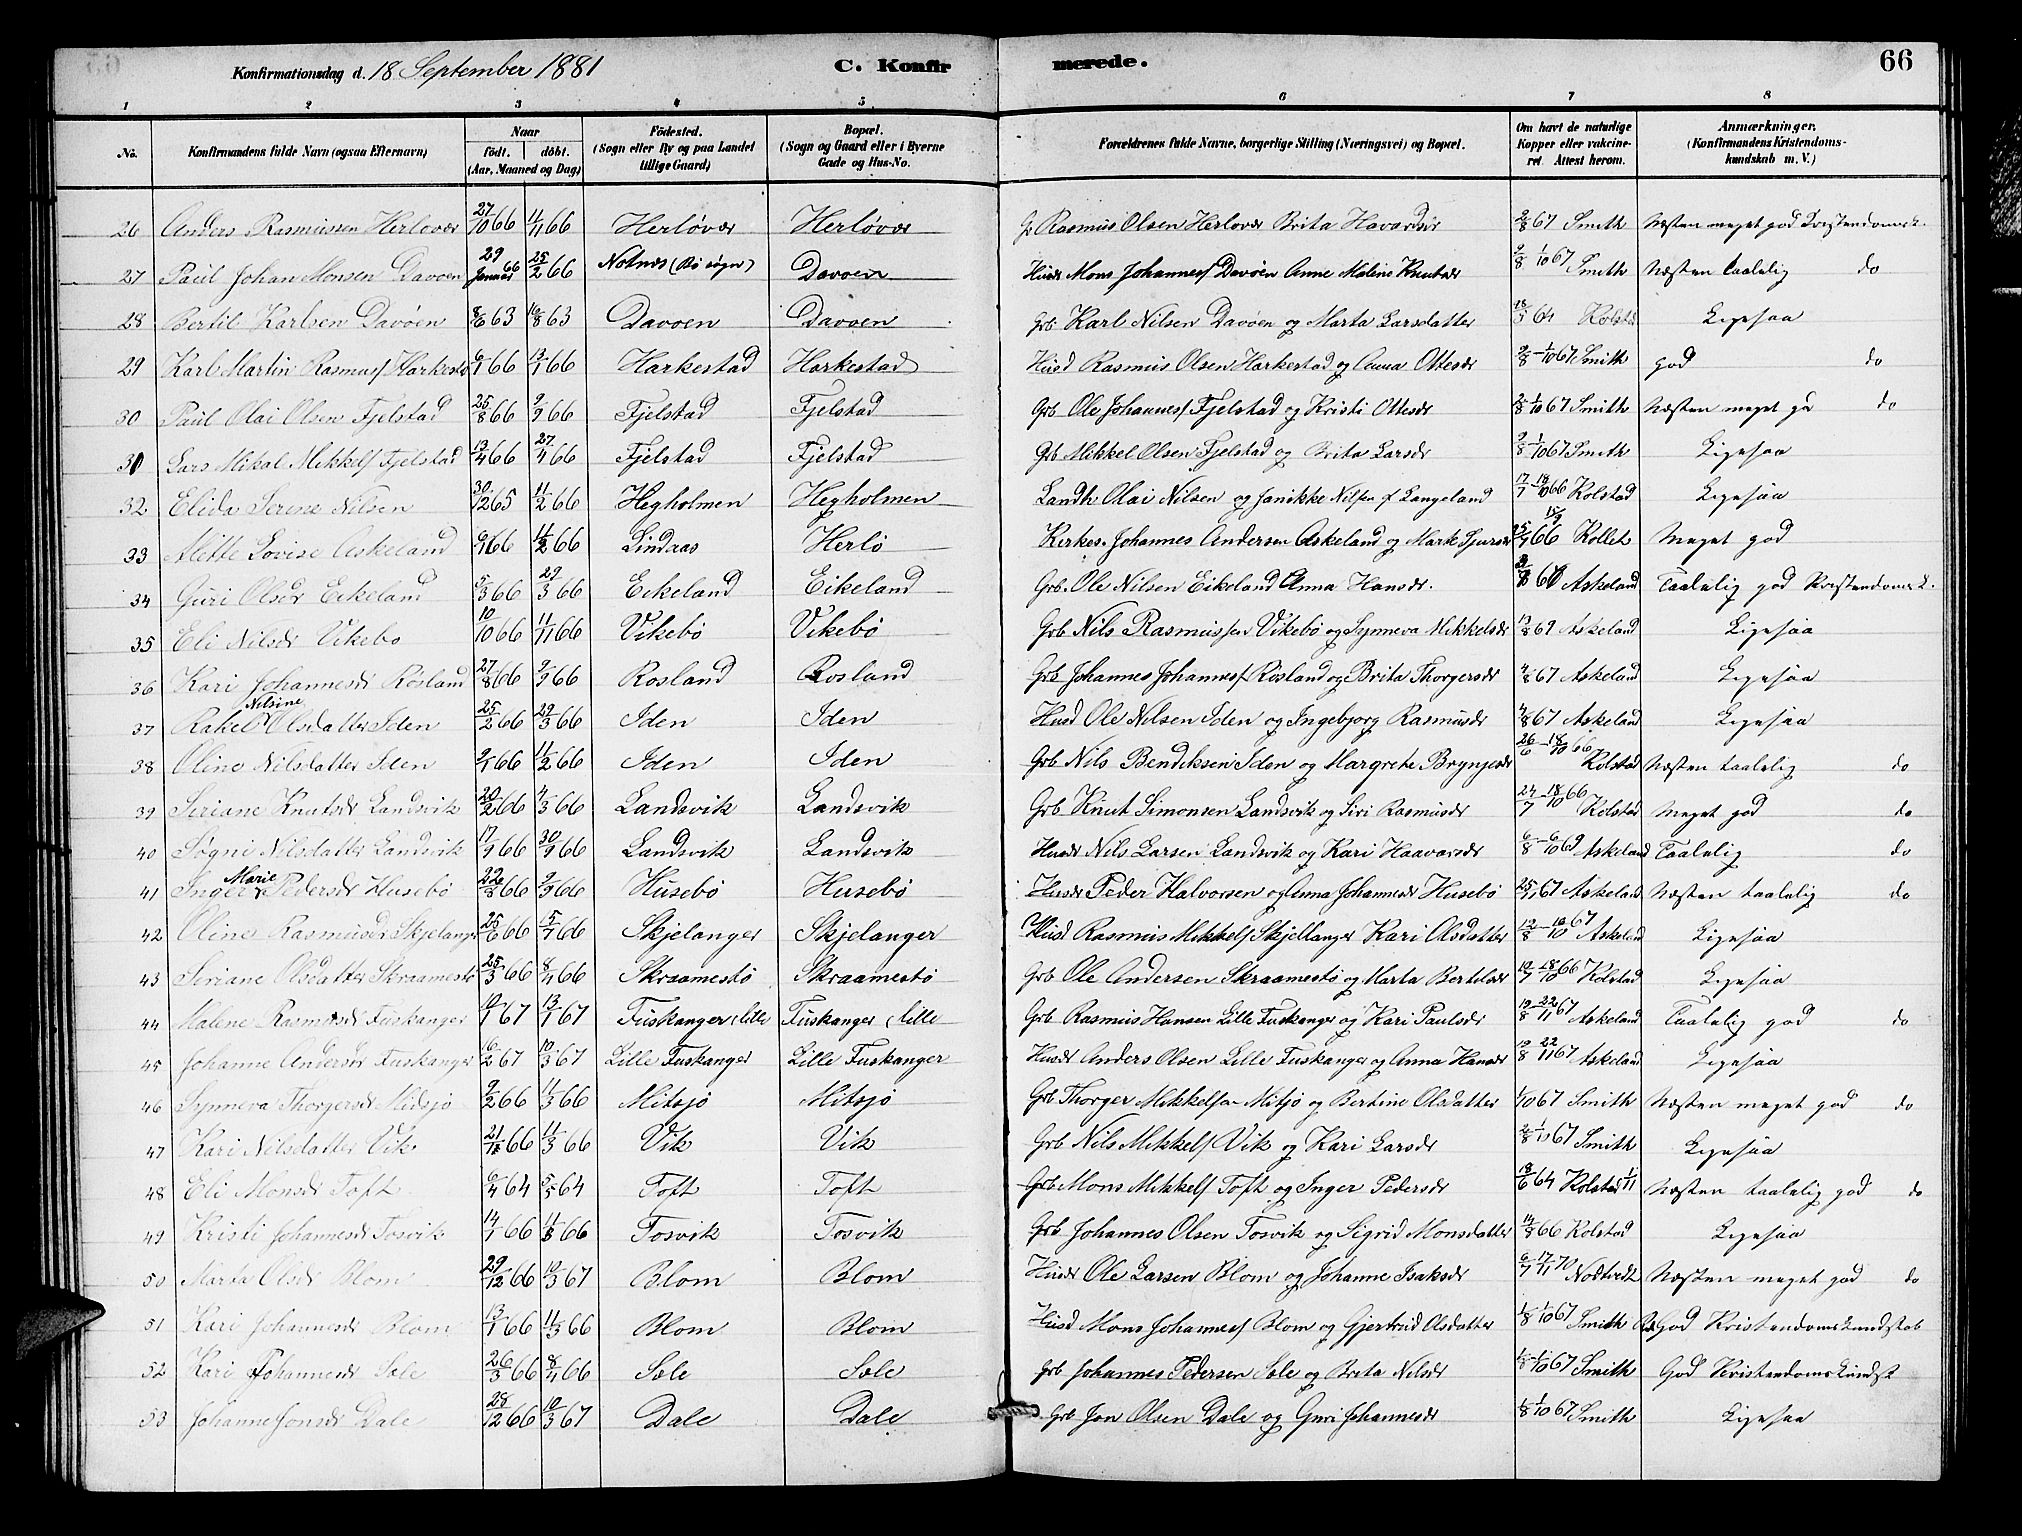 Konfirmationsdag d. 18 September 1881 C. Konfirmerede. 66
1 2 3 4 5 6 7 8
No. Konfirmandens fulde Navn (ogsaa Efternavn) Naar født. døbt. (Aar, Maaned og Dag) Födested. (Sogn eller By og paa Landet tillige Gaard) Bopæl. (Sogn og Gaard eller i Byerne Gade og Hus-No. Forældrenes fulde Navne, borgerlige Stilling (Næringsvei) og Bopæl. Om havt de naturlige Kopper eller vaccineret. Attest herom. Anmærkninger. (Konfirmandens Kristendomskundskab m. V.)
26 Anders Rasmussen Herlovær 27/10 66 4/11 66 Herlövær Herlövær Rasmus Olsen Herlovær Brita Havardsdr 2/8 67 Smith Næsten meget god Kristendomsk.
27 Paul Johan Monsen Davøen 29 Januar 66 25/2 66 Notnæs (Bø sogn) Davøen Husd Mons Johannes/ Davøen Anne Malene Knutsdr 2/8 1/10 67 Smith Næsten taalelig do
28 Bertil Karlsen Davøen 8/6 63 16/8 63 Davoen Davoen Grb. Karl Nilsen Davøen og Marta Larsdatter 18/3 64 Kolstad Ligesaa
29 Karl Martin Rasmus/ Harkestad 6/1 66 13/1 66 Harkestad Harkestad Husd Rasmus Olsen Harkestad og Anna Ottesdr 2/8 1/10 67 Smith god do
30 Paul Olai Olsen Fjelstad 25/8 66 9/9 66 Fjelstad Fjelstad Grb. Ole Johannes/ Fjelstad og Kristi Ottesdr 2/8 1/10 67 Smith Næsten meget go do
31 Lars Mikal Mikkels/ Fjelstad 13/4 66 27/4 66 Fjelstad Fjelstad Grb Mikkel Olsen Fjelstad og Brita Larsdr 2/8 1/10 67 Smith Ligesaa
32 Elida Serene Nilsen 30/12 65 11/2 66 Hegholmen Hegholmen Landh Olai Nilsen og Janikke Nilsen f Langeland 17/7 18/10 66 Kolstad Ligesaa
33 Mette Lovise Askeland 9/1 66 11/2 66 Lindaas Herlö Kirkes. Johannes Andersen Askeland og Marte Sjursdr 66 Kollet Meget god
34 Guri Olsdr Eikeland 5/3 66 29/3 66 Eikeland Eikeland Grb. Ole Nilsen Eikeland Anna Hansdr. 67 Askeland Taalelig god Kristendomsk.
35 Eli Nilsdr Vikebo 10/10 66 11/11 66 Vikebö Vikebö Grb Nils Rasmussen Vikebö og Synneva Mikkelsdr 13/8 69 Askeland Ligesaa
36 Kari Johannesdr Rosland 27/8 66 9/9 66 Rosland Rosland Grb Johannes Johannes/ Rosland og Brita Thorgersdr 4/8 67 Askeland Ligesaa
37 Rakel Nilsine Olsdatter Iden 25/2 66 29/3 66 Iden Iden Husd Ole Nilsen Iden og Ingebjorg Rasmusdr 4/8 67 Askeland Ligesaa
38 Oline Nilsdatter Iden 9/1 66 11/2 66 Iden Iden Grb Nils Bendiksen Iden og Margrete Brynjesdr 26/6 18/10 66 Kolstad Næsten taalelig do
39 Seriane Knutsdr Landsvik 20/2 66 4/3 66 Landsvik Landsvik Grb Knut Simonsen Landsvik og Siri Rasmusdr 24/7 18/10 66 Kolstad Meget god do
40 Søgni Nilsdatter Landsvik 17/9 66 30/9 66 Landsvik Landsvik Husdr Nils Larsen Landsvik og Kari Haavarsdr 6/8 6/10 69 Askeland Taalelig do
41 Inger Marie Pedersdr Husebö 22/8 66 9/9 66 Husebö Husebö Husdr Peder Halvorsen og Anna Johannesdr Husebö 25/9 67 Askeland Næsten taalelig do
42 Oline Rasmusdr Skjelanger 25/6 66 15/7 66 Skjelanger Skjelanger Husd Rasmus Mikkels/ Skjellanger Kari Olsdatter 12/8 10/10 67 Askeland Ligesaa
43 Seriane Olsdatter Skraamestø 25/3 66 8/4 66 Skraamestö Skraamestö Grb Ole Andersen Skraamestö og Marta Bertelsdr 10/7 18/10 66 Kolstad Ligesaa
44 Malene Rasmusdr Fuskanger 10/1 67 13/1 67 Fuskanger, Lille Fuskanger, Lille Grb Rasmus Hansen Lille Fuskanger og Kari Paulsdr 12/8 22/11 67 Askeland Taalelig god do
45 Johanne Andersdr Fuskanger 16/2 67 10/3 67 Lille Fuskanger Lille Fuskanger Husdr Anders Olsen Lille Fuskanger og Anna Hansdr 12/8 22/11 67 Askeland Ligesaa
46 Synneva Thorgersdr Midsjö 9/2 66 11/3 66 Mitsjö Mitsjö Grb Thorger Mikkelsen Mitsjö og Bertine Olsdatter 1/10 67 Smith Næsten meget god do
47 Kari Nilsdatter Vik 21/ 66 11/3 66 Vik Vik Grb Nils Mikkels/ Vik og Kari Larsdr 2/8 1/10 67 Smith Ligesaa
48 Eli Monsdr Toft 6/4 64 5/5 64 Toft Toft Grb Mons Mikkels/ Toft og Inger Pedersdr 18/6 64 Kolstad Næsten taalelig god do
49 Kristi Johannesdr Tosvik 14/7 66 66 Tosvik Tosvik Grb Johannes Olsen Tosvik og Sigrid Monsdatter 14/8 66 Kolstad Ligesaa
50 Marta Olsdr Blom 29/12 66 10/3 67 Blom Blom Husdr Ole Larsen Blom og Johanne Isaksdr 6/7 17/11 70 Nodtvedt Næsten meget god do
51 Kari Johannesdr Blom 13/1 66 11/3 66 Blom Blom Husd Mons Johannes/ Blom og Gjertrud Olsdatter 1/8 1/10 67 Smith God Kristendomskundskab
52 Kari Johannesdr Sole 26/3 66 8/4 66 Sole Sole Grb Johannes Pedersen Sole og Brita Nilsdr 1/8 1/10 67 Smith God Kristendomskundsk
53 Johanne Jonsdr Dale 28/12 66 10/3 67 Dale Dale Grb Jon Olsen Dale og Guri Johannesdr 1/8 1/10 67 Smith Ligesaa